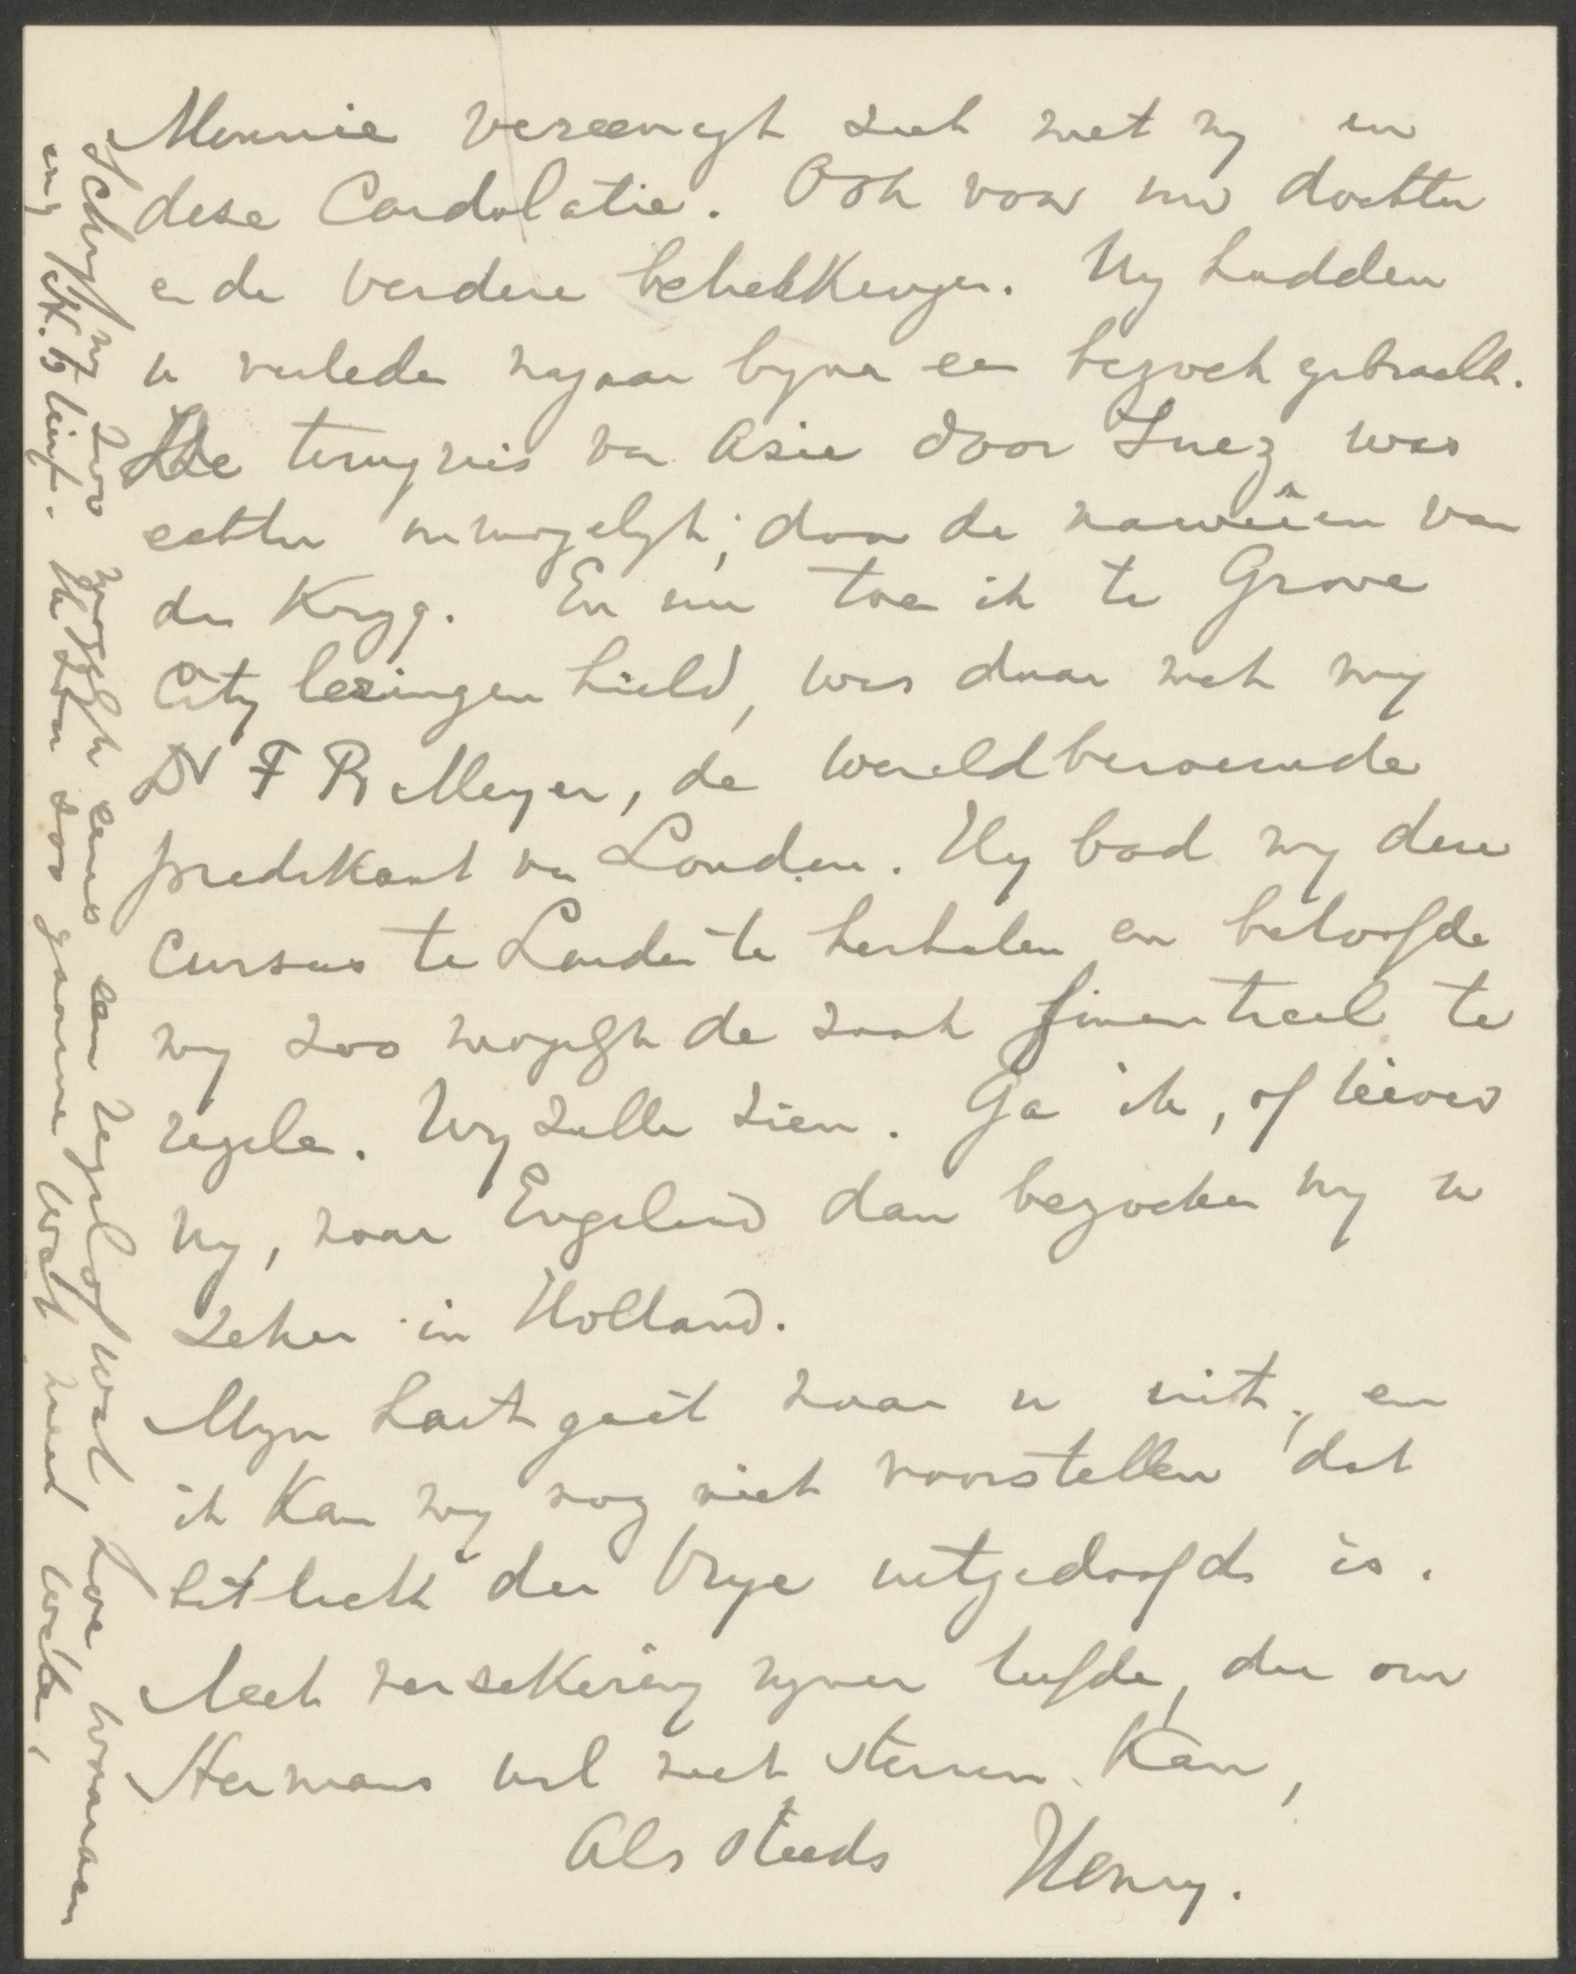 Minnie vereenigt zich met my in
deze Condolatie. Ook voor uw dochter
en de verdere betrekkingen. Wy hadden
u verleden najaar byna een bezoek gebracht.
De terugreis van Asie door Suez was
echter onmogelyk, door de naweëen van
den Kryg. En nu toen ik te Grove
City lezingen hield, was daar met my
Dr F B Meyer, de wereldberoemde
predikant van Londen. Hy bad my dezen
cursus te Londen te herhalen en beloofde
my zoo mogelyk de zaak financieel te
regelen. Wy zullen zien. Ga ik, of liever
wy, naar Engeland dan bezoeken wy u
zeker in Holland.
Myn hart gaat naar u uit, en
ik Kan my nog niet voorstellen dat
het licht der Vrye uitgedoofd is.
Met verzekering myner liefde, die om
Hermans wil niet sterven Kan,
Als steeds Henry.
Schryf my zoo mogelyk eens een regel of wat, hoe waaraan
en, K. B. stierf. Ik zou zoo gaarne wat meer weten,